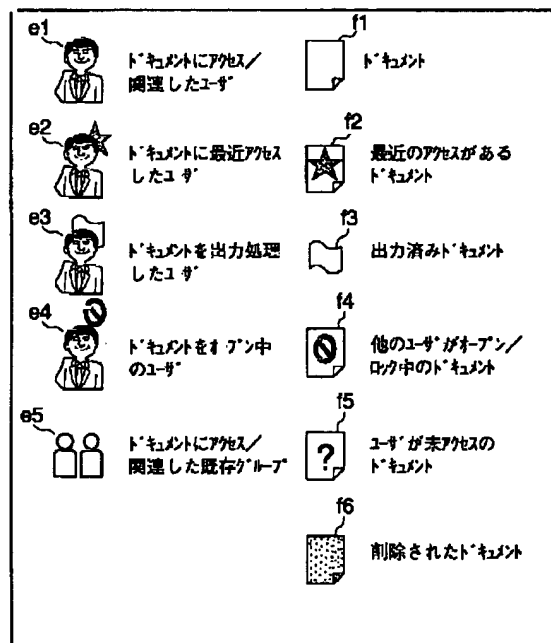 e1
ﾄﾞｷｭﾒﾝﾄにｱｸｾｽ／
関連したﾕｰｻﾞ
e2
ﾄﾞｷｭﾒﾝﾄに最近ｱｸｾｽ
したﾕｰｻﾞ
e3
ﾄﾞｷｭﾒﾝﾄを出力処理
したﾕｰｻﾞ
e4
ﾄﾞｷｭﾒﾝﾄをｵｰﾌﾟﾝ中
のﾕｰｻﾞ
e5
ﾄﾞｷｭﾒﾝﾄにｱｸｾｽ／
関連した既存ｸﾞﾙｰﾌﾟ
f1
ﾄﾞｷｭﾒﾝﾄ
f2
最近のｱｸｾｽがある
ﾄﾞｷｭﾒﾝﾄ
f3
出力済みﾄﾞｷｭﾒﾝﾄ
f4
他のﾕｰｻﾞがｵｰﾌﾟﾝ／
ﾛｯｸ中のﾄﾞｷｭﾒﾝﾄ
f5
?
ﾕｰｻﾞが未ｱｸｾｽの
ﾄﾞｷｭﾒﾝﾄ
f6
削除されたﾄﾞｷｭﾒﾝﾄ